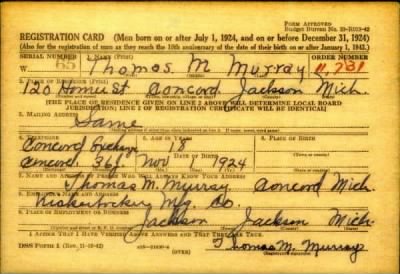 FORM APPROVED
Budget Bureau No. 33-R013-42
REGISTRATION CARD (Men born on or after July 1, 1924, and on or before December 31, 1924)
(Also for the registration of men as they reach the 18th anniversary of the date of their birth on or after January 1, 1943.)
SERIAL NUMBER 1. NAME (Print) ORDER NUMBER
Thomas M Murray 11,731
2. PLACE OF RESIDENCE (Print)
120 St Concord Jackson Mich.
[THE PLACE OF RESIDENCE GIVEN ON LINE 2 ABOVE WILL DETERMINE LOCAL BOARD
JURISDICTION; LINE 2 OF REGISTRATION CERTIFICATE WILL BE IDENTICAL]
3. MAILING ADDRESS
Same
4. TELEPHONE 5. AGE IN YEARS 6. PLACE OF BIRTH
Concord 18
DATE OF BIRTH
Concord 361 Nov 1924
7. NAME AND ADDRESS OF PERSON WHO WILL ALWAYS KNOW YOUR ADDRESS
Thomas M. Murray Concord Mich.
8. EMPLOYER'S NAME AND ADDRESS
Mfg. Co.
9. PLACE OF EMPLOYMENT OR BUSINESS
Jackson Jackson Mich.
I AFFIRM THAT I HAVE VERIFIED ABOVE ANSWERS AND THAT THEY ARE TRUE.
DSS Form 1 (OVER) Thomas M. Murray